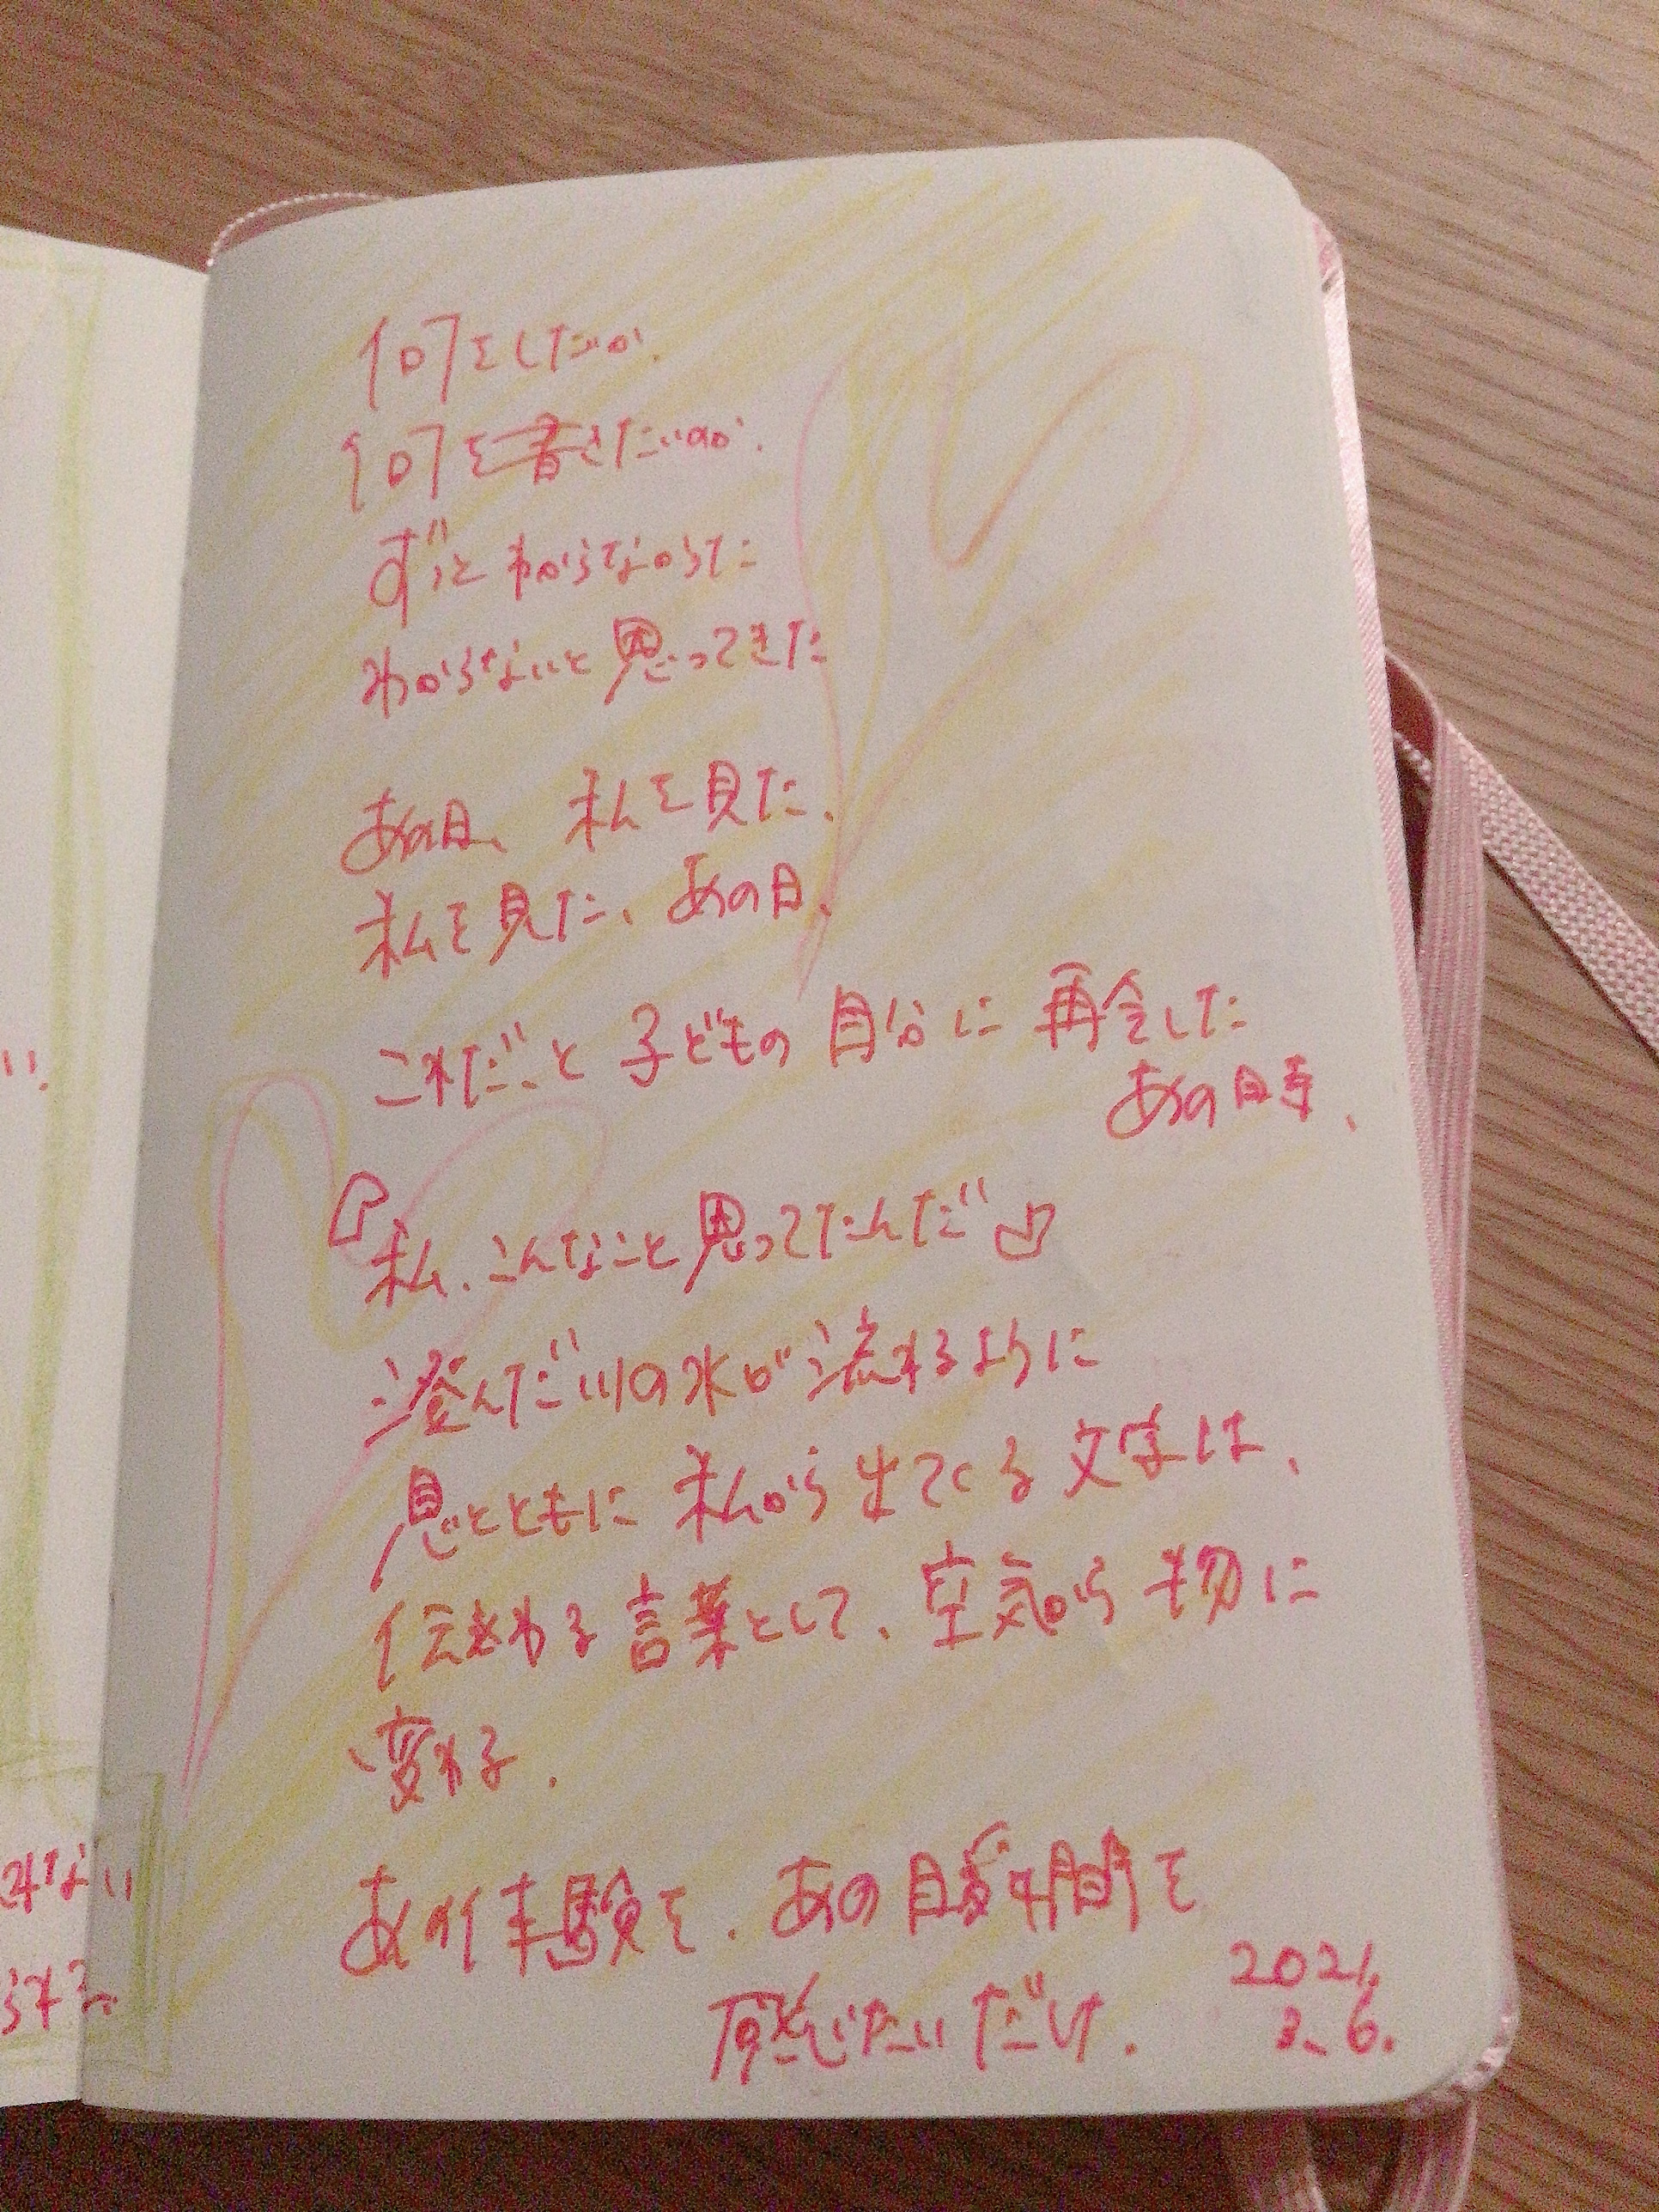 何をしたいか.
何を書きたいのか.
ずっとわからなかった
わからないと思ってきた
あの日、私を見た、
私を見た、あの日、
これだ、と子どもの自分に再会した
あの時、
『私、こんなこと思ってたんだ』
澄んだ川の水が流れるように
息とともに私から出てくる文字は、
伝わる言葉として、空気から物に
変わる.
あの体験を、あの瞬間を
感じたいだけ.
2021.
3.6.